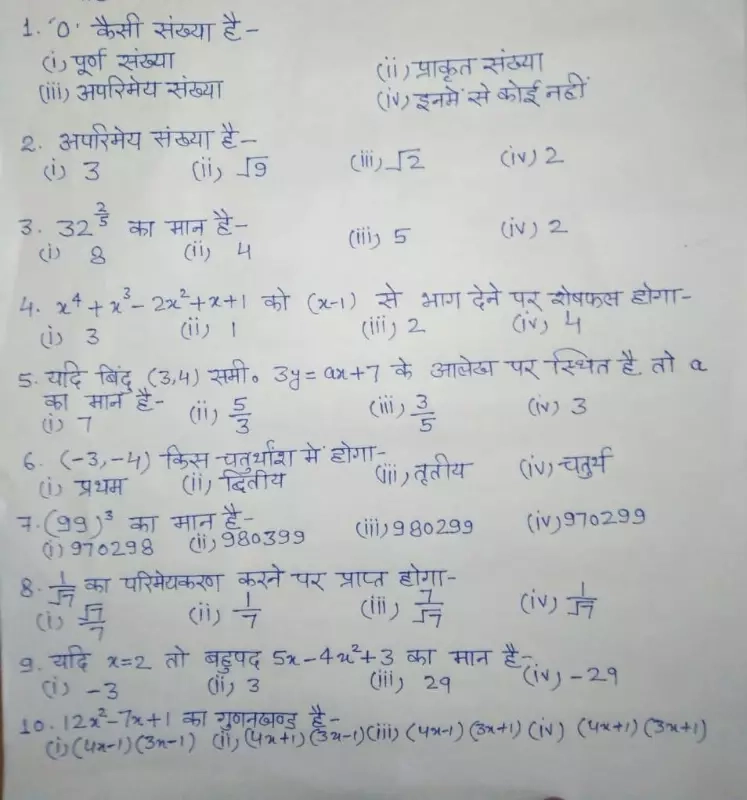 1. '0' कैसी संख्या है-
(i) पूर्ण संख्या (ii) प्राकृत संख्या
(iii) अपरिमेय संख्या (iv) इनमें से कोई नहीं
2. अपरिमेय संख्या है-
(i) 3 (ii) √9 (iii) √2 (iv) 2
3. 32^(2/5) का मान है-
(i) 8 (ii) 4 (iii) 5 (iv) 2
4. x⁴ + x³ - 2x² + x + 1 को (x-1) से भाग देने पर शेषफल होगा-
(i) 3 (ii) 1 (iii) 2 (iv) 4
5. यदि बिंदु (3,4) समी० 3y = ax + 7 के आलेख पर स्थित है तो a
का मान है-
(i) 7 (ii) 5/3 (iii) 3/5 (iv) 3
6. (-3, -4) किस चतुर्थांश में होगा-
(i) प्रथम (ii) द्वितीय (iii) तृतीय (iv) चतुर्थ
7. (99)³ का मान है-
(i) 970298 (ii) 980399 (iii) 980299 (iv) 970299
8. 1/√7 का परिमेयकरण करने पर प्राप्त होगा-
(i) √7/7 (ii) 1/7 (iii) 7/√7 (iv) 1/√7
9. यदि x=2 तो बहुपद 5x - 4x² + 3 का मान है-
(i) -3 (ii) 3 (iii) 29 (iv) -29
10. 12x² - 7x + 1 का गुणनखण्ड है-
(i) (4x-1) (3x-1) (ii) (4x+1) (3x-1) (iii) (4x-1) (3x+1) (iv) (4x+1) (3x+1)